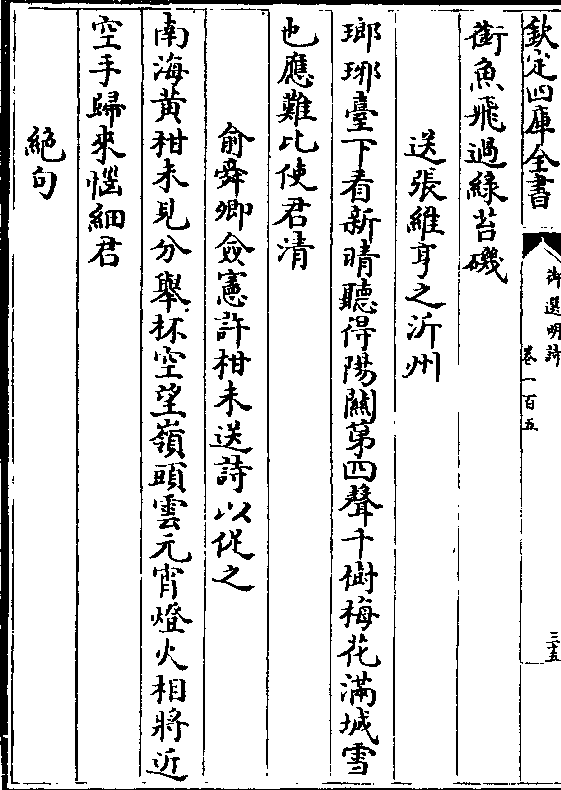 欽定四庫全書
御選明詩
卷一百五
三五
銜魚飛過緑苔磯
送張維亨之沂州
瑯琊臺下看新晴聽得陽關第四聲千樹梅花滿城雪
也應難比使君清
俞舜卿僉憲許柑未送詩以促之
南海黄柑未見分舉杯空望嶺頭雲元宵燈火相將近
空手歸來惱細君
絶句